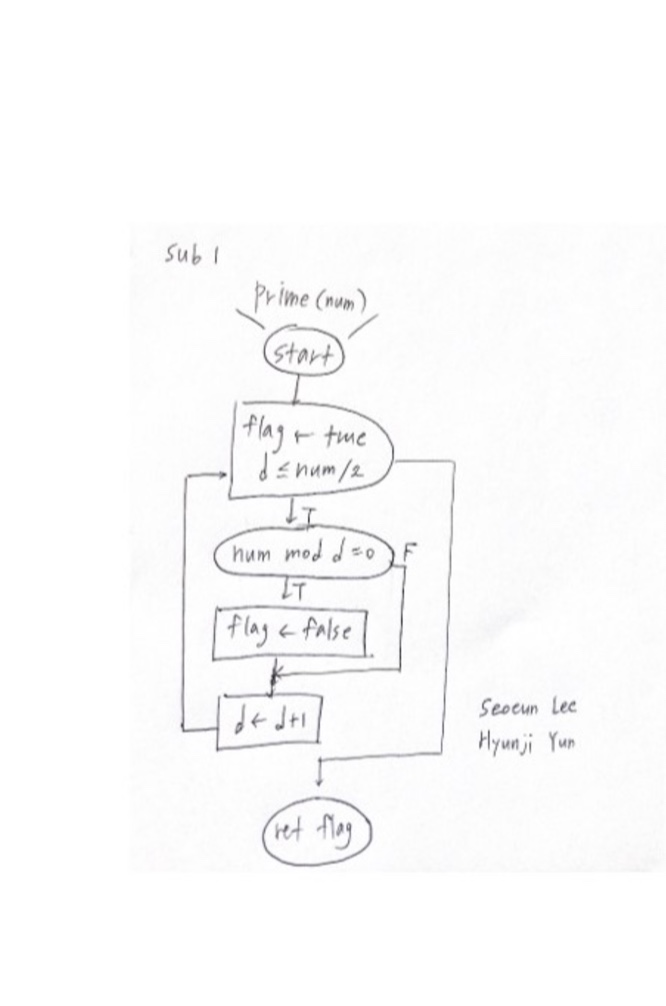 Sub 1
Prime (num)
start
flag ← true
d ≤ num/2
T
num mod d = 0
F
T
flag ← false
d ← d+1
Seoeun Lee
Hyunji Yun
ret flag